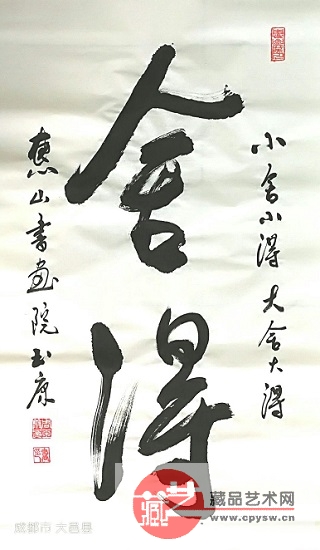 舍得
小舍小得 大舍大得
惠山書画院 玉康
藏艺
藏品艺术网
www.cpysw.cn
成都市 大邑县